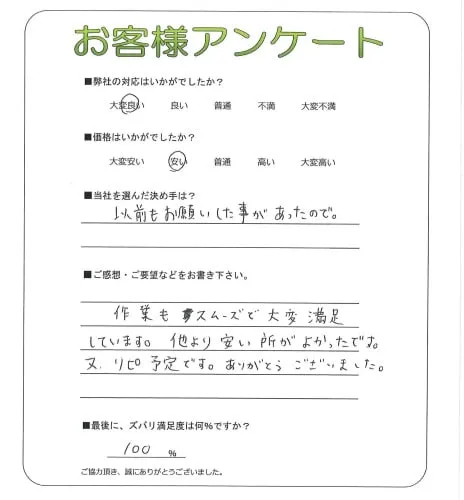 お客様アンケート
■弊社の対応はいかがでしたか？
大変良い 良い 普通 不満 大変不満
■価格はいかがでしたか？
大変安い 安い 普通 高い 大変高い
■当社を選んだ決め手は？
以前もお願いした事があったので。
■ご感想・ご要望などをお書き下さい。
作業もスムーズで大変満足
しています。他より安い所がよかったです。
又、リピ予定です。ありがとうございました。
■最後に、ズバリ満足度は何％ですか？
100 %
ご協力頂き、誠にありがとうございました。